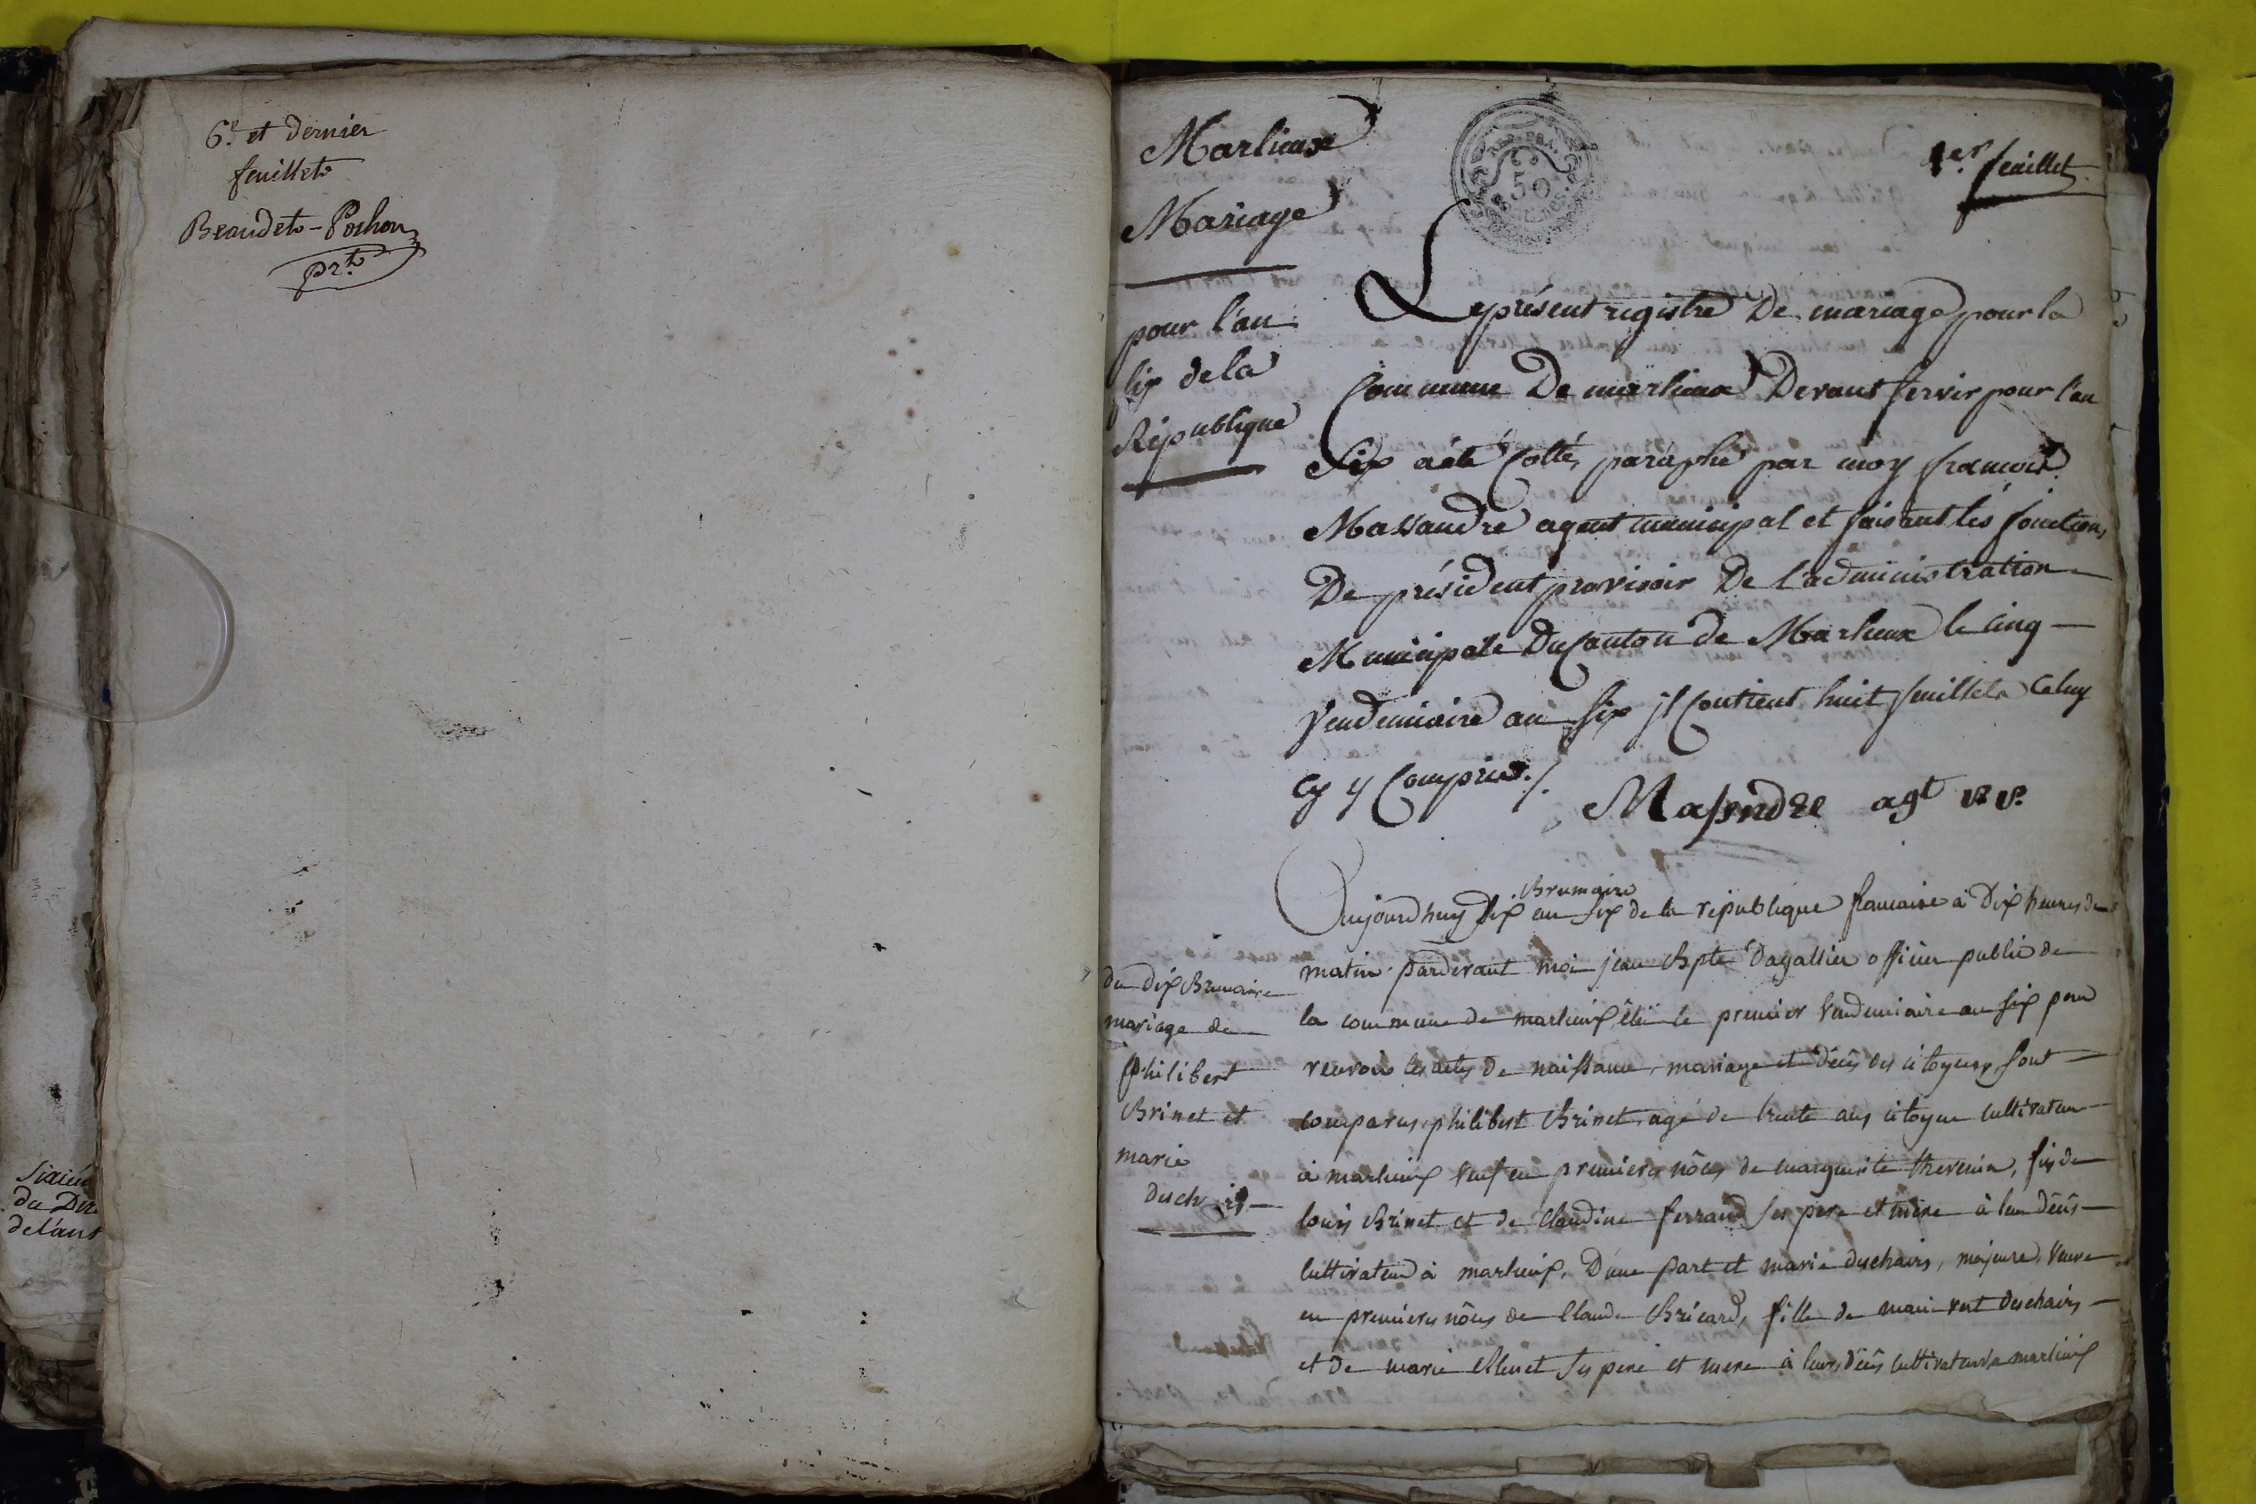 6e et dernier
feuillet
Beaudet-Pochon
prt
Sixièm
du Dix
de l'an
Marlieux
Mariage
pour l'an
six de la
République
REP. FRA.
50
CENTIMES
1er feuillet
Le présent registre De mariage pour la
Commune De marlieux Devant servir pour l'an
Six a été Cotté, paraphé par moy francois
Massandre agent municipal et faisant les fonctions
De président provisoir De l'administration
Municipale Du Canton de Marlieux le cinq
Vendemiaire an six il Contient huit feuillets Celuy
Cy y Compris ./.
Massndre agt
Brumaire
Aujourdhuy Dix an six de la république francaise à Dix heures du
matin pardevant moi jean Bpte Dagallier officier public de
la commune de marlieux élu le premier Vendemiaire an six pour
recevoir les actes de naissance, mariage et décès des citoyens, sont
comparus philibert Brinet, agé de trente ans citoyen cultivateur
à marlieux veuf en premieres nôces de marguerite thevenin, fils de
louis Brinet et de Claudine ferrand ses pere et mère à leur décès
cultivateur à marlieux, D'une part et marie duchairs, majeure, veuve
en premieres nôces de Claude Bricard, fille de deschairs
et de marie ses pere et mere à leurs décès cultivateurs a marlieux
du dix Brumaire
mariage de
philibert
Brinet et
marie